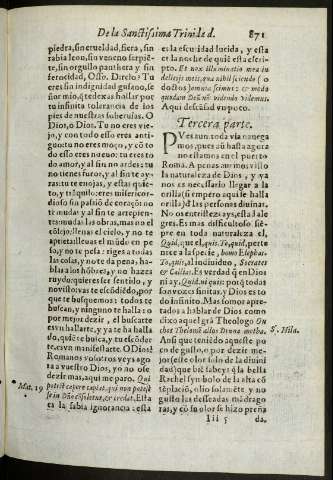 De la Sanctissima Trinidad.
871
piedra, sin crueldad, fiera, sin
rabia leon, sin veneno serpiẽ-
te, sin orgullo panthera y sin
ferocidad, Osso. Direlo? Tu
eres sin indignidad gusano, se
ñor mio, q̃ te dexas hollar por
tu infinita tolerancia de los
pies de nuestras soberuias. O
Dios, ô Dios. Tu no eres vie-
jo, y con todo esso eres anti-
guo: tu no eres moço, y cõ to
do esso eres nueuo: tu eres to
do amor y al fin no ardes: tu
no tienes furor, y al fin te ay-
ras: tu te enojas, y estas quie-
to, y trãquilo: eres misericor-
dioso sin passiõ de coraçõ: no
te mudas y al fin te arrepien-
tes: mudas las obras, mas no el
cõsejo: llenas el cielo, y no te
el mũdo en pe
so, y no te pesa: riges a todas
las cosas, y no te da pena: ha-
blas a los hõbres, y no hazes
ruydo: quieres ser sentido, y
no vistonos te escõdes: dõ, por
que te busquemos: todos te
buscan, y ninguno te halla: o
por mejor dezir, el buscarte
es vn hallarte, y ya te ha halla
do, quiẽ te busca, y tu escõder
te, es vn manifestarte. O Dios!
Romanos vosotros veys ago-
ra a vuestro Dios, yo no osè
dezir mas, aqui me paro. Qui
Mat. 19 potest capere capiat, qui non potest
Esta
es la sabia ignorancia: esta
es la escuridad lucida, y esta
es la noche de quien esta escri-
pto. Et nox illuminatio mea in
delicijs meis, qua nihil sciendo (o
doctos) omnia scimus: & modo
quodam Deũ nõ videndo videmus.
Aqui descãsad vn poco.
Tercera parte.
PVes aun toda via nauega
mos, pues aũ hasta agora
no estamos en el puerto
Roma. A penas menos visto
la naturaleza de Dios, y ya
nos es necessario llegar a la
orilla: si empero aqui se halla
orilla, d̃ las personas diuinas.
No os entristezcays, estad ale
gres. Es mas dificultoso siẽ-
pre en toda naturaleza el,
Quid, que el, quis. To, quid, perte
nece a la specie, homo Elephas.
To, quis, al indiuiduo, Socrates
& Callias. Es verdad q̃ en Dios
ni ay, Quid, ni quis: porq̃ todas
son vozes finitas, y Dios es to
do infinito. Mas somos apre-
tados a hablar de Dios como
dixo aquel grã Theologo
S. Hila.
Ansi que tenido aqueste po
co de gusto, o por dezir me-
jor este olor solo de la diuini
dad q̃ que biẽ sabeys q̃ la bella
Rachel symbolo de la alta cõ
templaciõ, olio solamẽte y no
gusto las desseadas mãdrago
ras, y cõ su olor se hizo preña
Iii 5
da.